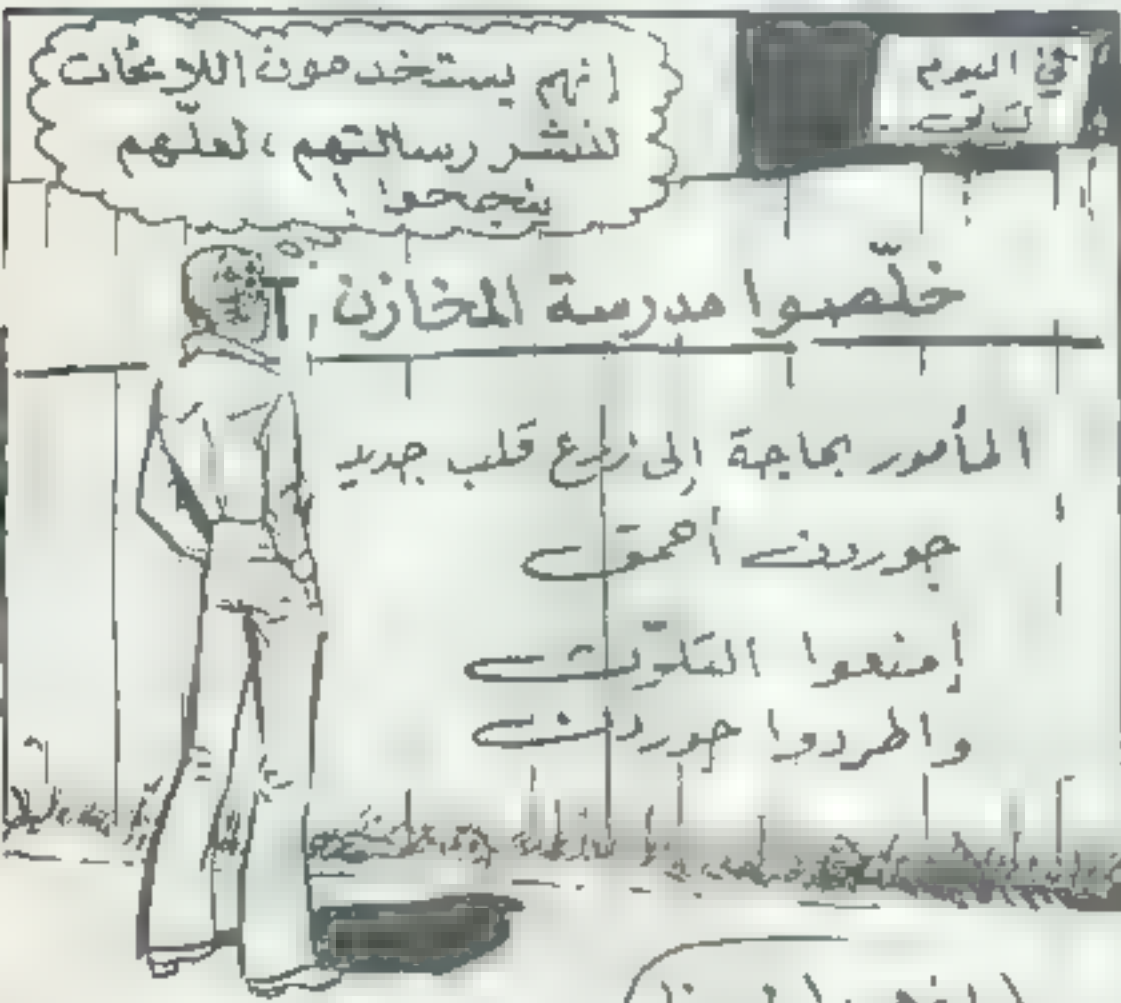 في اليوم
انهم يستخدمون اللوحات
لنشر رسالتهم ، لعلّهم
ينجحوا !
خلّصوا مدرسة المخازن
المأمور بحاجة إلى زرع قلب جديد
جوردن أحمق
إمنعوا التلوّث
واطردوا جوردن